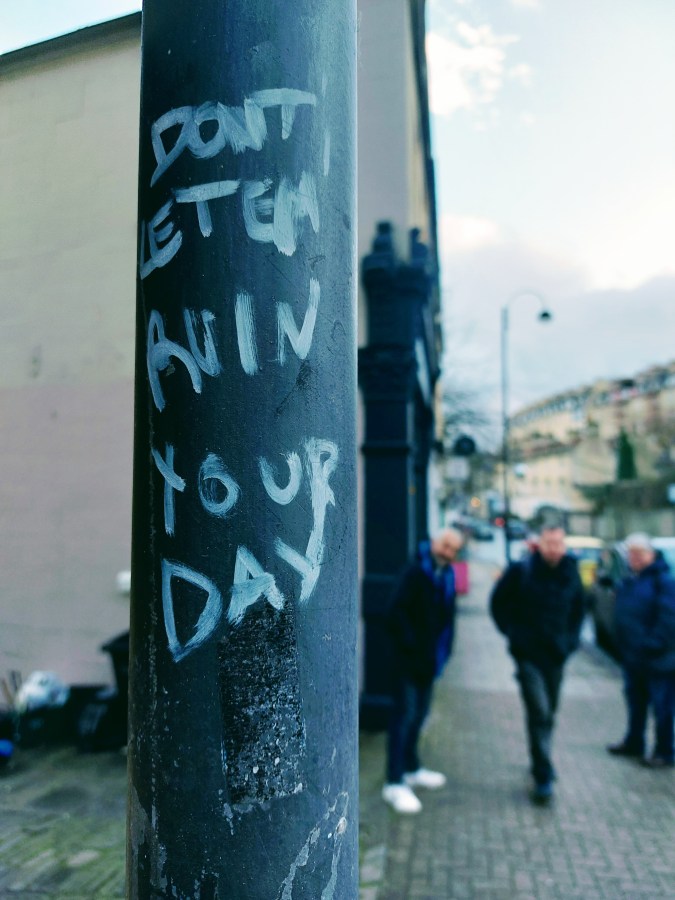 DON'T
LET EM
RUIN
YOUR
DAY